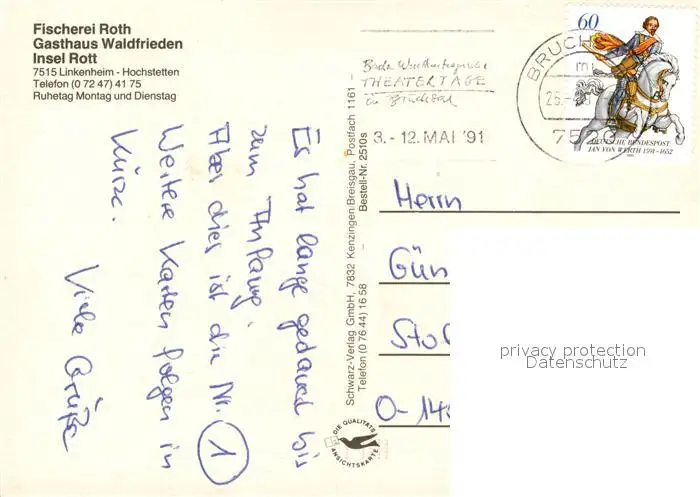 Fischerei Roth
Gasthaus Waldfrieden
Insel Rott
7515 Linkenheim - Hochstetten
Telefon (0 72 47) 41 75
Ruhetag Montag und Dienstag
Es hat lange gedauert bis
zum Anfang.
Aber dies ist die Nr. 1
Weitere Karten folgen in
Kürze.
Viele Grüße
Schwarz-Verlag GmbH, 7832 Kenzingen/Breisgau, Postfach 1161 -
Telefon (0 76 44) 16 58 Bestell-Nr. 2510s
DIE QUALITÄTS
ANSICHTSKARTE
THEATERTAGE
in Bruchsal
3. - 12. MAI '91
BRUCH
60
DEUTSCHE BUNDESPOST
JAN VON WERTH 1591-1652
Herrn
Gün
Sto
O-14
privacy protection
Datenschutz